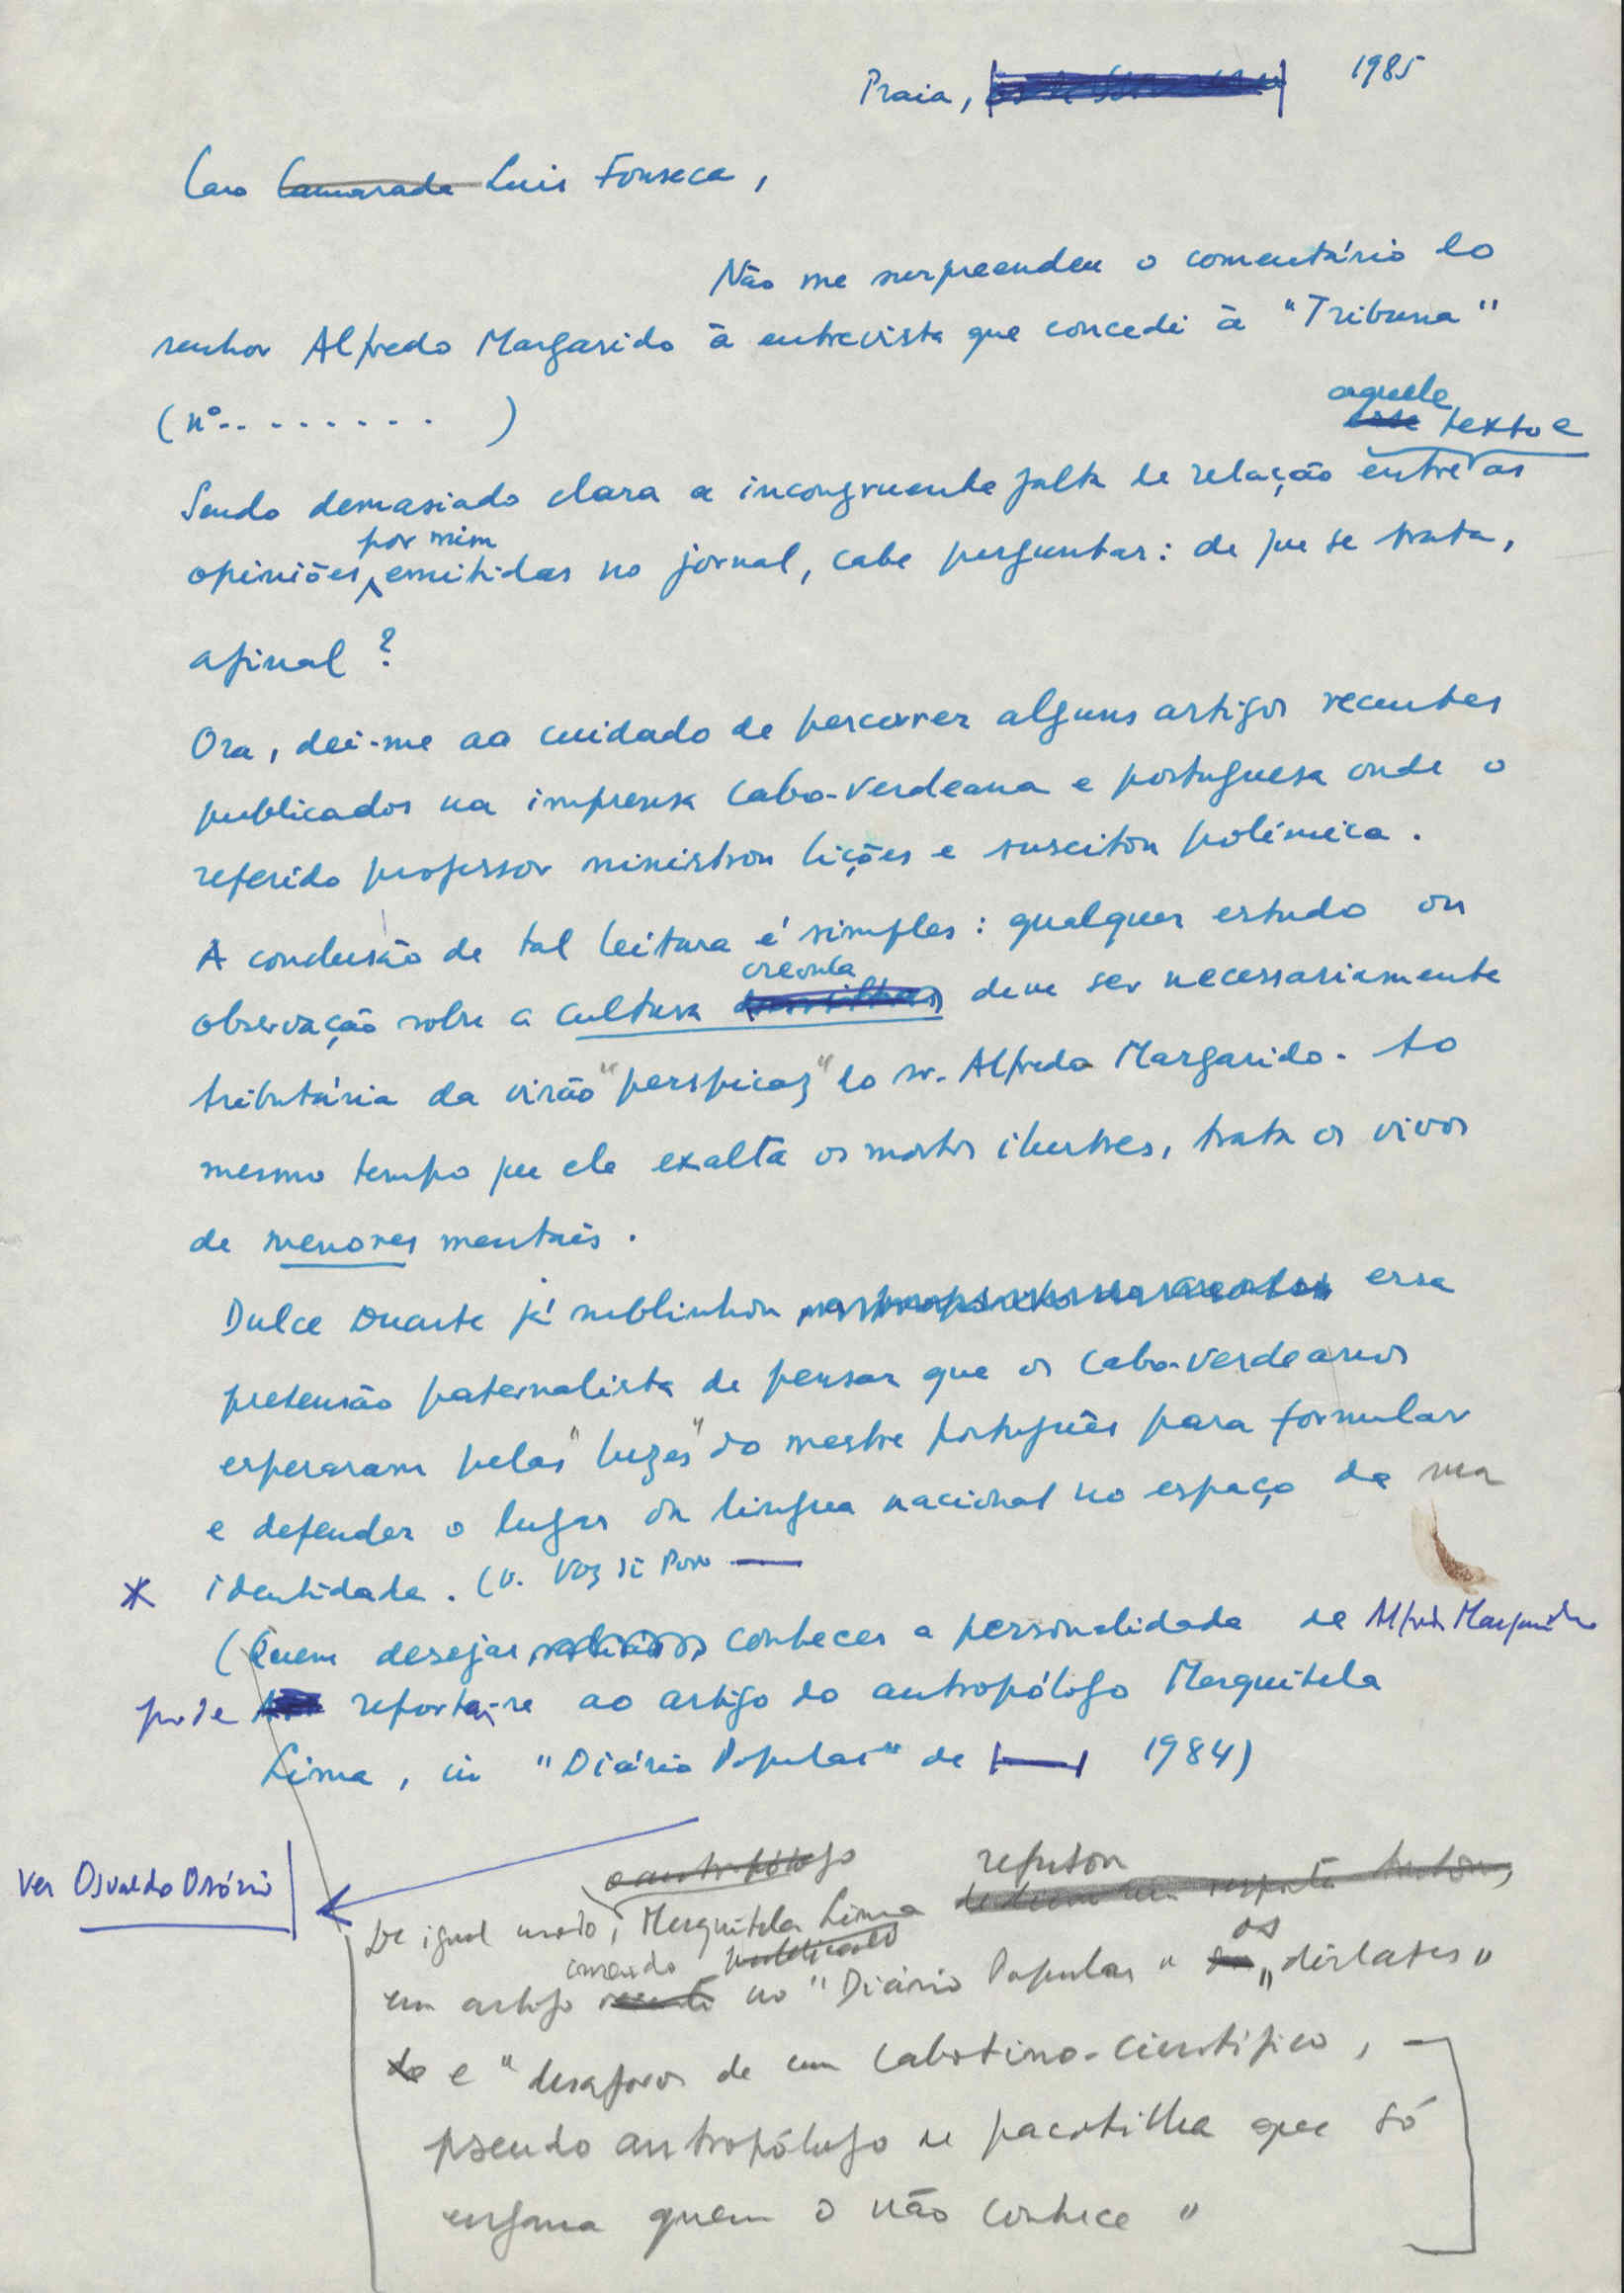 Praia, 1985
Caro Camarada Luis Fonseca,
Não me surpreendeu o comentário do
senhor Alfredo Margarido à entrevista que concedi à "Tribuna"
(nº.........)
aquele
esse texto e
Sendo demasiado clara a incongruente falta de relação entre as
por mim
opiniões emitidas no jornal, cabe perguntar: de que se trata,
afinal?
Ora, dei-me ao cuidado de percorrer alguns artigos recentes
publicados na imprensa cabo-verdeana e portuguesa onde o
referido professor ministrou lições e suscitou polémica.
A conclusão de tal leitura é simples: qualquer estudo ou
creoula
observação sobre a cultura deve ser necessariamente
tributária da visão "perspicaz" do sr. Alfredo Margarido. Ao
mesmo tempo que ele exalta os mortos ilustres, trata os vivos
de menores mentais.
Dulce Duarte já sublinhou essa
pretensão paternalista de pensar que os cabo-verdeanos
esperaram pelas "luzes" do mestre português para formular
e defender o lugar da língua nacional no espaço da sua
* identidade. (v. Voz di Povo —
(Quem desejar conhecer a personalidade de Alfredo Margarido
pode reportar-se ao artigo do antropólogo Mesquitela
Lima, in "Diário Popular" de 1984)
Ver Osvaldo Osório
o antropólogo refutou
De igual modo, Mesquitela Lima
publicado os
em artigo recente no "Diário Popular" "dislates"
de e "desaforos de um cabotino-científico,
pseudo antropólogo de pacotilha que só
engana quem o não conhece"